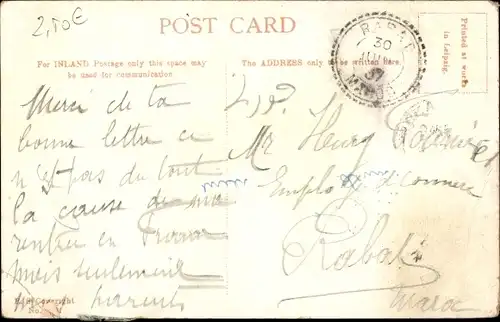 2,50€
POST CARD
For INLAND Postage only this space may
be used for communication
The ADDRESS only to be written here.
Printed at works
in Leipzig.
RABAT
30
MAROC
Merci de ta
bonne lettre ce
n'est pas du tout
la cause de ma
rentrer en
mais seulement
parents
Mr Henry
Employé de commerce
Rabat
Maroc
Copyright
No.